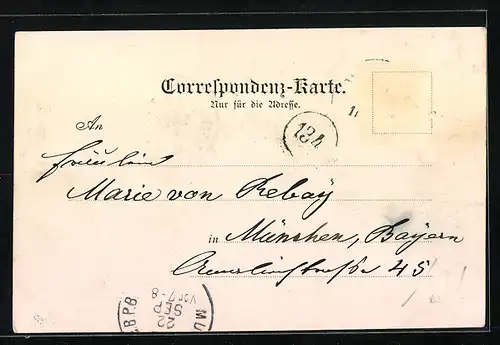 Correspondenz-Karte.
Nur für die Adresse.
134
An
Fräulein
Marie von Rebay
in München, Bayern
45
MÜ
22
SEP
VOR. 7-8
B.P.B.